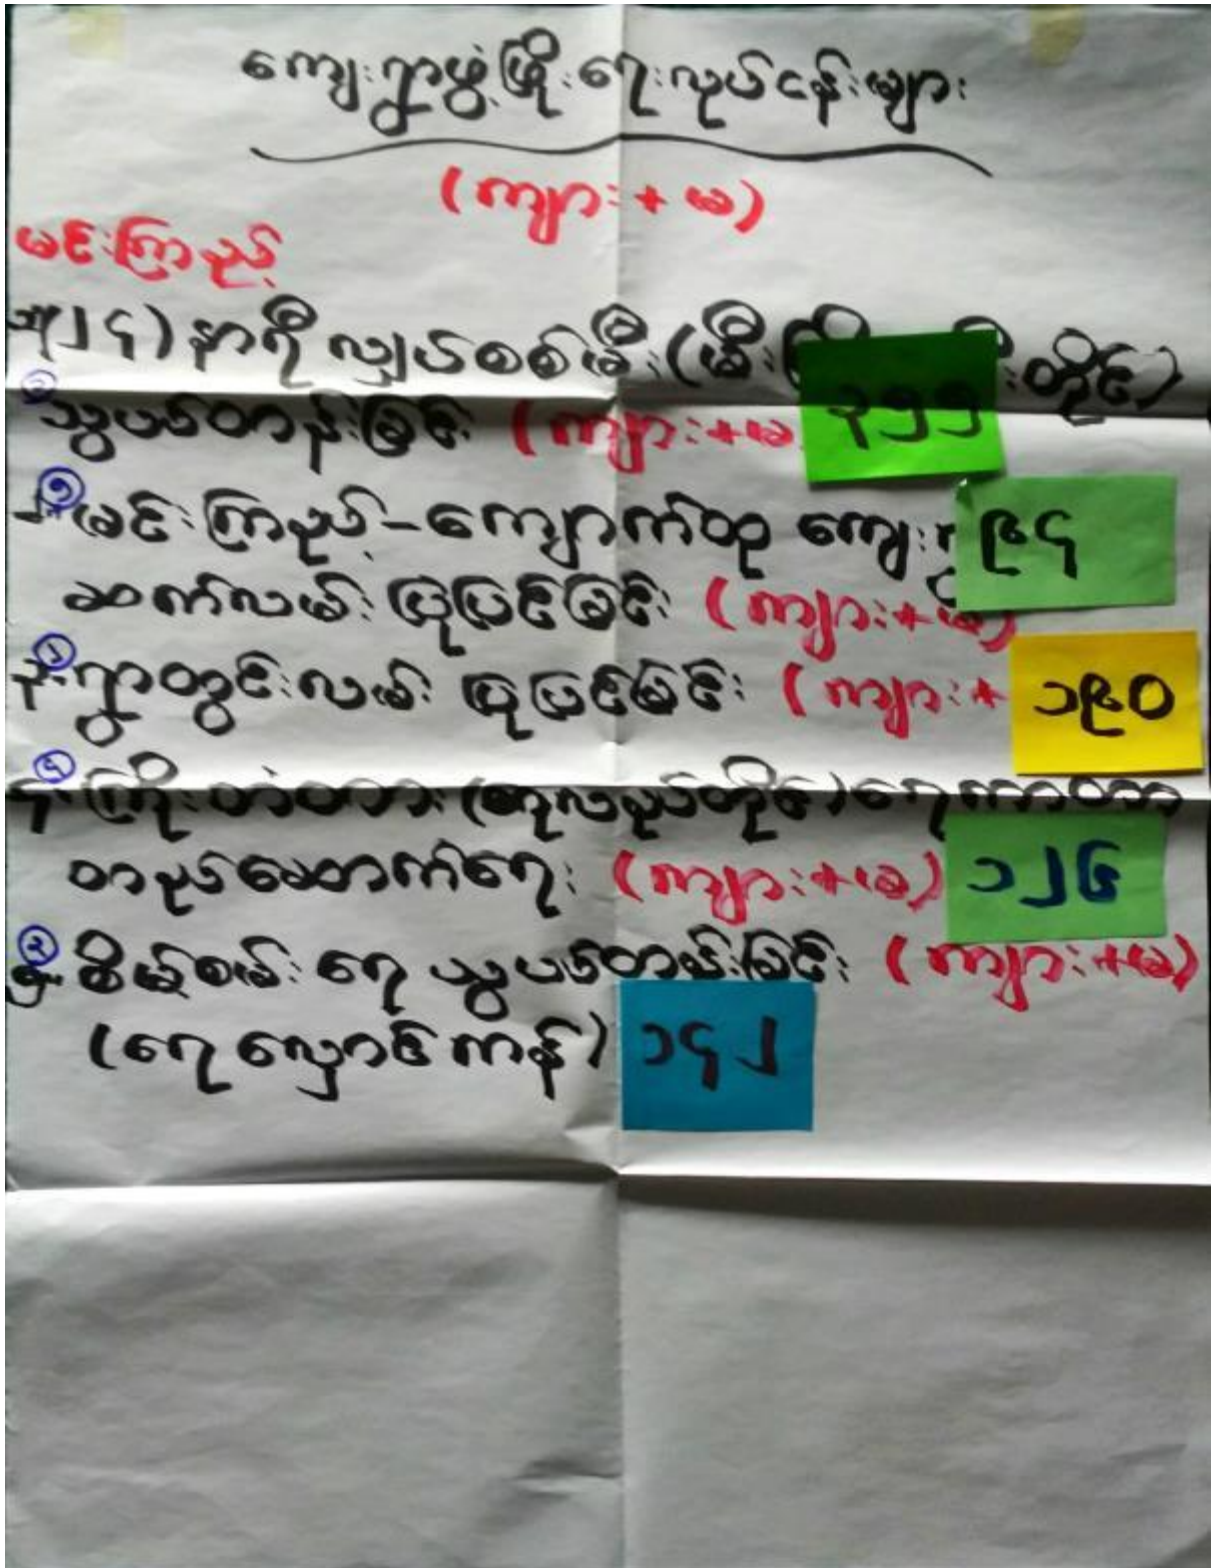 ကျေးရွာဖွံ့ဖြိုးရေးလုပ်ငန်းများ
(ကျား+မ)
မင်းကြည့်
(၂၄) နာရီ လျှပ်စစ်မီး (မီး တိုင်)
သွယ်တန်းခြင်း (ကျား+မ ၃၅၅
မင်းကြည့်-ကျောက်ထု ကျေးရွာ ၉၄
ဆက်လမ်း ပြုပြင်ခြင်း (ကျား+မ)
ရွာတွင်းလမ်း ပြုပြင်ခြင်း (ကျား+ ၁၉၀
၄ ကြိုးတံတား ရေကာတာ
တည်ဆောက်ရေး (ကျား+မ) ၁၂၆
စိမ့်စမ်းရေ သွယ်တန်းခြင်း (ကျား+မ)
(ရေလှောင်ကန်) ၁၄၂